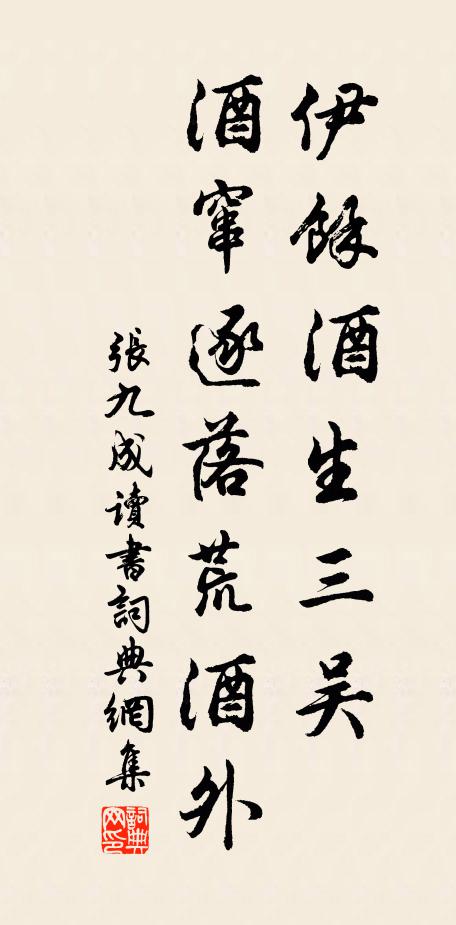 伊餘酒生三吴
酒窜逐落荒酒外
張九成讀書詞典網集
詞典网印